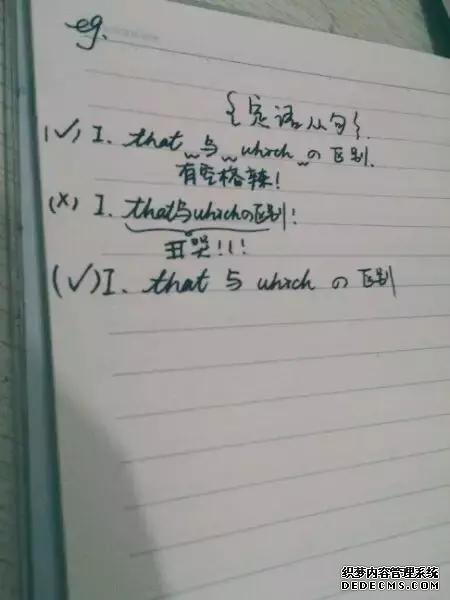 eg.
{定语从句}.
(√) I. that 与 which の区别.
有空格辣!
(×) I. that与whichの区别!
丑哭!!!
(√) I. that 与 which の区别
织梦内容管理系统
DEDECMS.COM